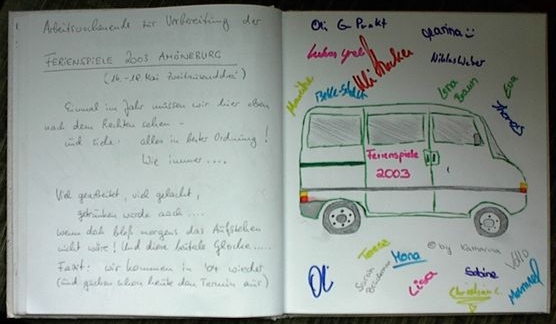 Arbeitswochenende zur Vorbereitung der
FERIENSPIELE 2003 AMÖNEBURG
(16.-18. Mai Zweitausenddrei)
Einmal im Jahr müssen wir hier oben
nach dem Rechten sehen -
und siehe: alles in bester Ordnung!
Wie immer....
Viel gearbeitet, viel gelacht,
getrunken wurde auch....
wenn doch bloß morgens das Aufstehen
nicht wäre! Und diese brutale Glocke.....
Fazit: wir kommen in '04 wieder
(und gucken schon heute den Termin aus)
Oli G. Punkt
Katarina
Niklas Weber
Lena
Baum
Eva
Thomas
Ferienspiele
2003
© by Katharina
Teresa
Mona
Sarah
Lisa
Sabine
Christian C.
Oli